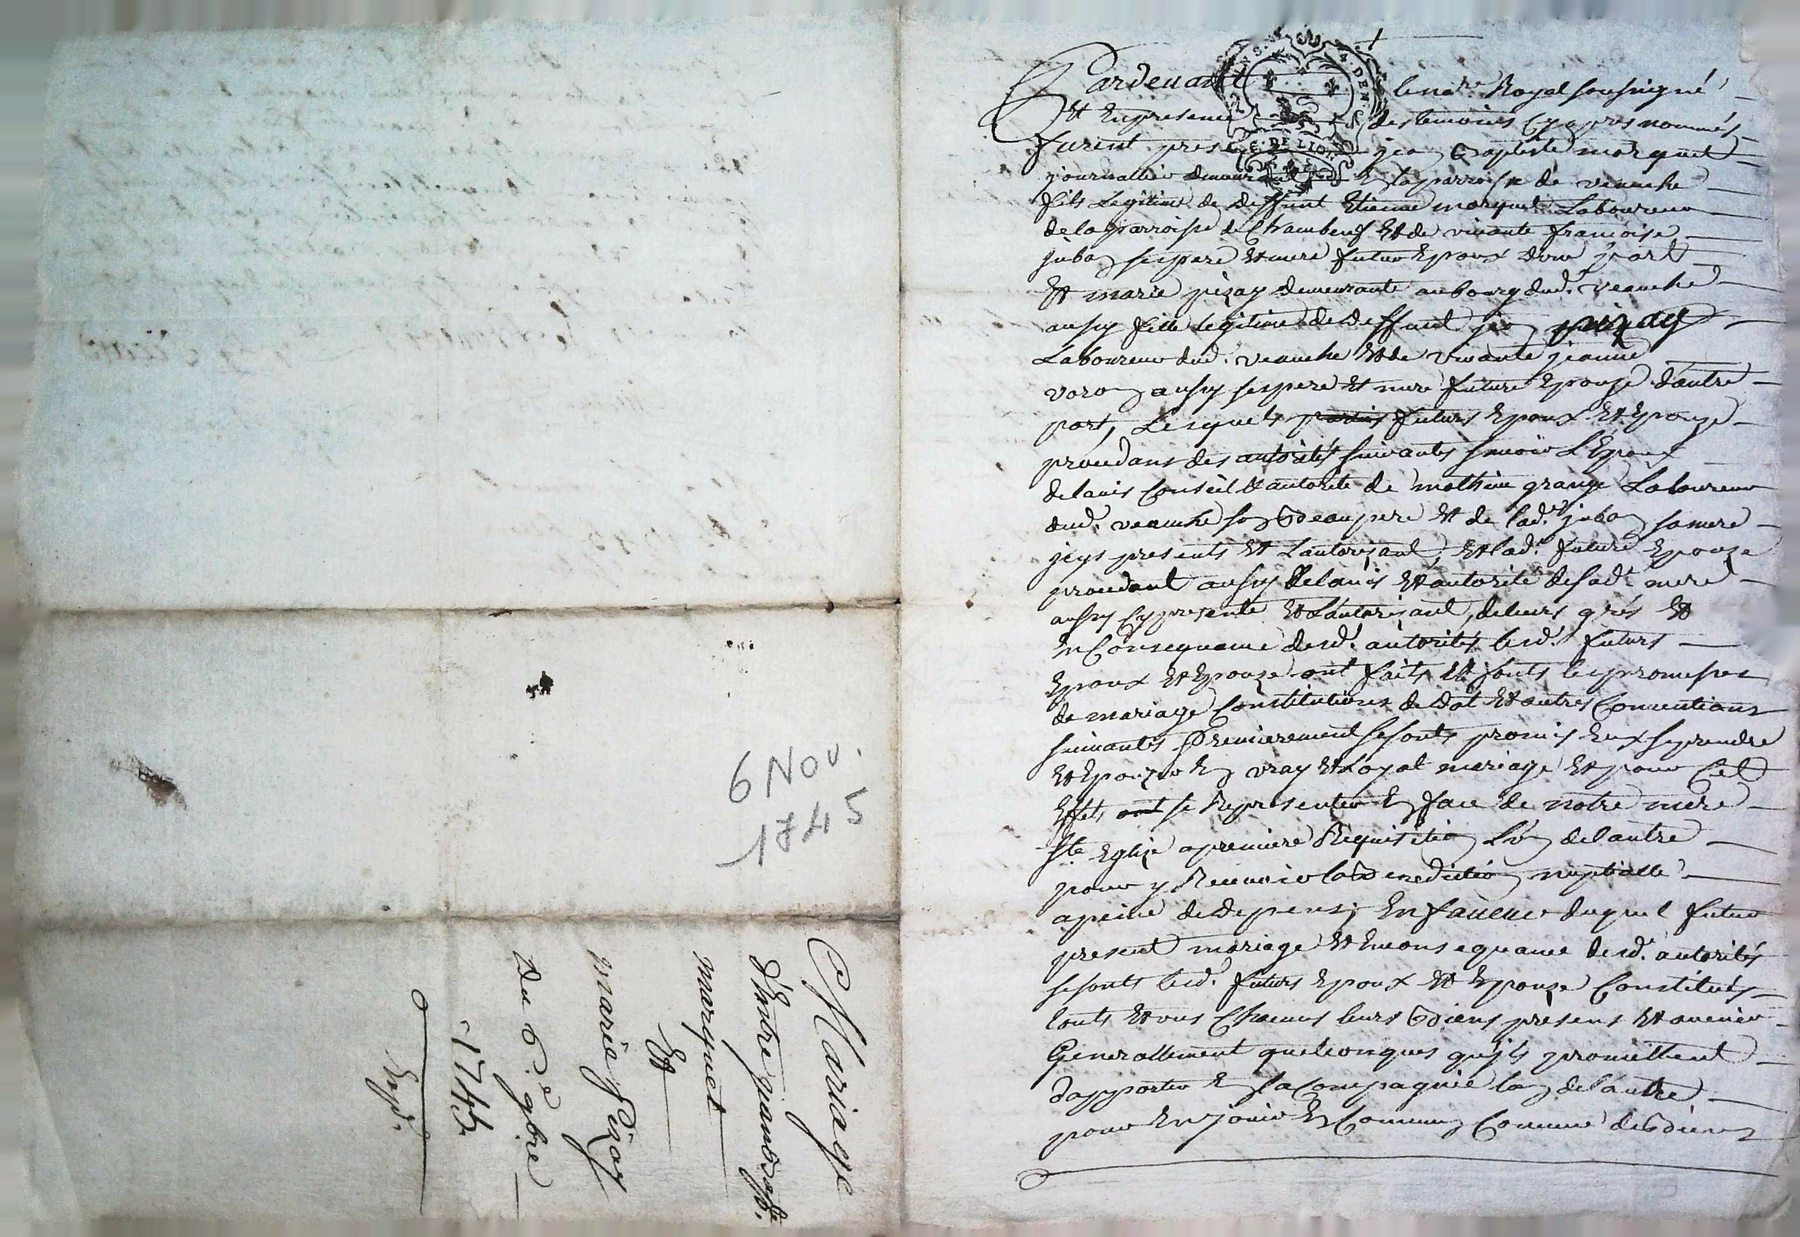 6 Nov.
1745
Mariage
D'Entre jean bapte.
marquet
Et
marie Pizay
Du 6e. 9bre
1745.
Expd.
Pardevant le nore. Royal soussigné
Et En presence des temoins Cy apres nommés
furent presents jean Baptiste marquet
journallier demeurant en la parroisse de veauche
fils Legitime de deffunt Etienne marquet Laboureur
de la parroisse de Chambeuf Et de vivante francoise
juban ses pere Et mere futur Epoux d'une part
Et marie pizay demeurante au bourg dud. veauche
aussy fille Legitime de deffunt jean pizay
Laboureur dud. veauche Et de vivante jeanne
aussy ses pere Et mere future Epouze d'autre
part, Lesquels parties futurs Epoux Et Epouze
procedans des autorités suivantes sçavoir L'Epoux
de lavis Conseil Et autorité de mathieu grange Laboureur
dud. veauche son Beaupere Et de lade. juban sa mere
icys presents Et Lautorisant, Et lade. future Epouze
procedant aussy de lavis Et autorité de sade. mere
aussy Cy presente Et Lautorisant, de leurs grés Et
En Consequance desd. autorités lesd. futurs
Epoux Et Epouze ont faits Et fonts les promesses
de mariage Constitutions de Dot Et autres Conventions
suivantes Premierement se sonts promis Eux se prendre
Et Epouzer En vray Et Loyal mariage Et pour Cet
Effet ont se Representer En face de notre mere
Ste Eglise a premiere Requisition L'un de lautre
pour y Recevoir la Benediction nuptialle
a peine de depens; En faveur duquel futur
present mariage Et En consequance desd. autorités
se sonts lesd. futurs Epoux Et Epouze Constitués
touts Et uns Chacuns leurs Biens presens Et avenir
Generallement quelconques qu'ils promettent
d'apporter En la Compagnie lun de lautre
pour En jouir En Commun Comme de Biens